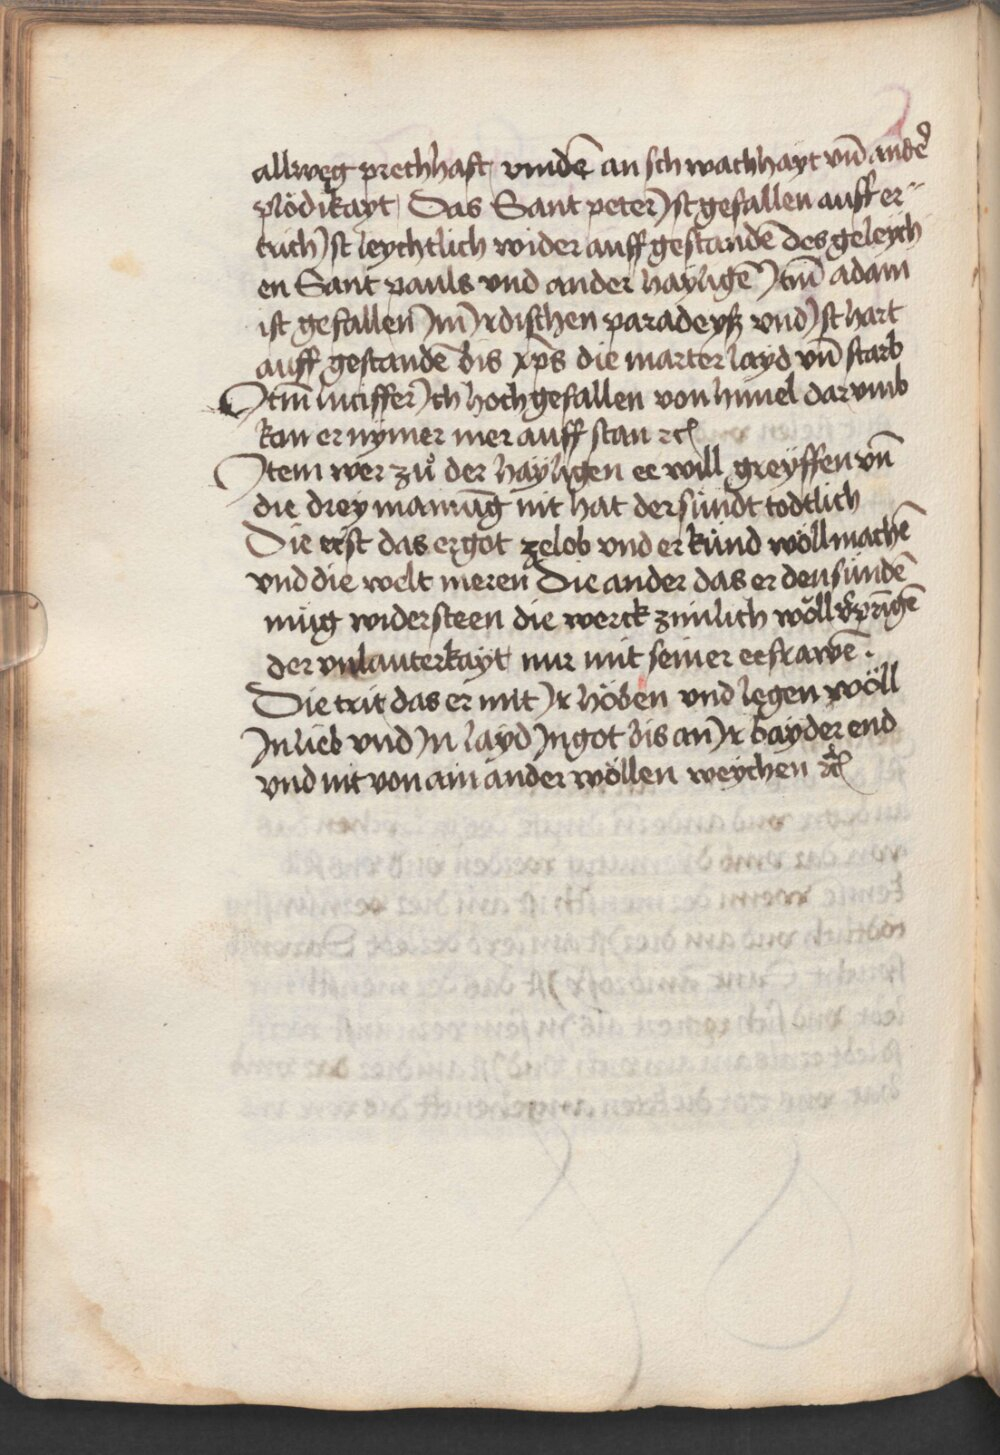 allweg prechhaft vindē an schwachhayt vn̄ andeʳ
plödikayt Das Sant peter Jst gefallen auff er-
trich Jst leychtlich wider auff gestandē des geleych
en Sant pauls vnd ander hayligē Jtm̄ adam
ist gefallen Jm Jrdischen paradeyß vnd Jst hart
auff gestandē bis xp̄s die marter layd vn̄ starb
Jtm̄ luciffer Jch hoch gefallen von himel dar vmb
kan er nymer mer auff stan ꝛcͭ
Jtem wer zů der hayligen ee will greyffen vn̄
die drey mainūg nit hat der sündt todtlich
Die erst das er got zelob vnd er künd wöll machē
vnd die welt meren Die ander das er den sündē
müg widersteen die werck zimlich wöll v̄prīgē
der vnlauterkayt nur mit seiner eefrawē.
Die trit das er mit Jr höben vnd legen wöll
Jn lieb vnd Jn layd Jn got bis an Jr bayder end
vnd nit von ain ander wöllen weychen ꝛcͭ